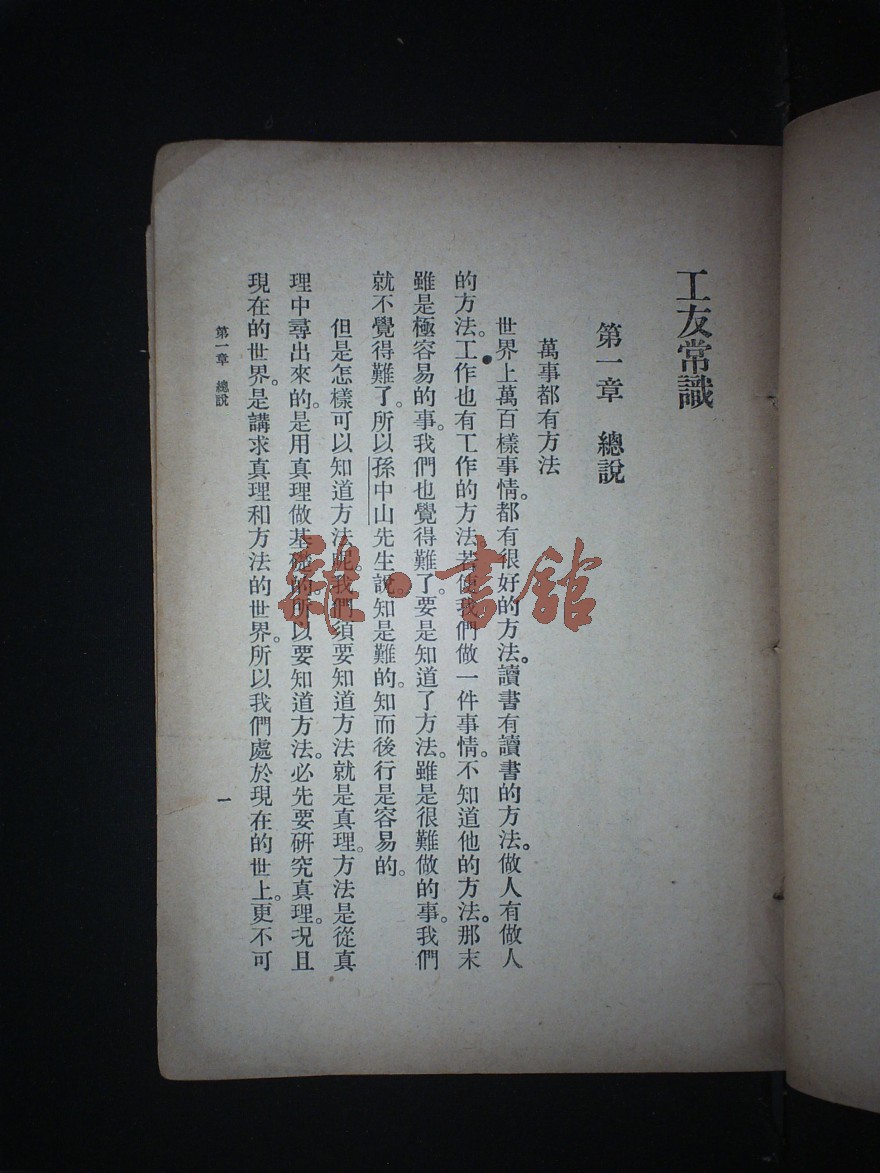 工友常識
第一章　總說
萬事都有方法
世界上萬百樣事情。都有很好的方法。讀書有讀書的方法。做人有做人
的方法。工作也有工作的方法若使我們做一件事情。不知道他的方法。那末
雖是極容易的事。我們也覺得難了。要是知道了方法。雖是很難做的事。我們
就不覺得難了。所以孫中山先生說。知是難的。知而後行是容易的。
但是怎樣可以知道方法呢。我們須要知道方法就是真理。方法是從真
理中尋出來的。是用真理做基礎的。所以要知道方法。必先要研究真理。況且
現在的世界。是講求真理和方法的世界。所以我們處於現在的世上。更不可
第一章　總說
一
雜·書館